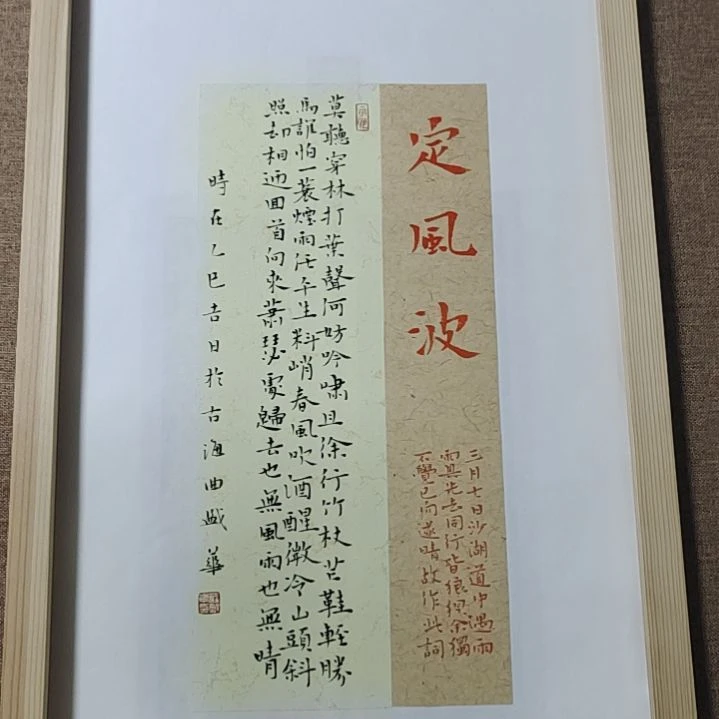 定風波
三月七日沙湖道中遇雨
雨具先去同行皆狼狽余獨
不覺已而遂晴故作此詞
莫聽穿林打葉聲何妨吟嘯且徐行竹杖芒鞋輕勝
馬誰怕一蓑煙雨任平生料峭春風吹酒醒微冷山頭斜
照却相迎回首向來蕭瑟處歸去也無風雨也無晴
時在乙巳吉日於古海曲華